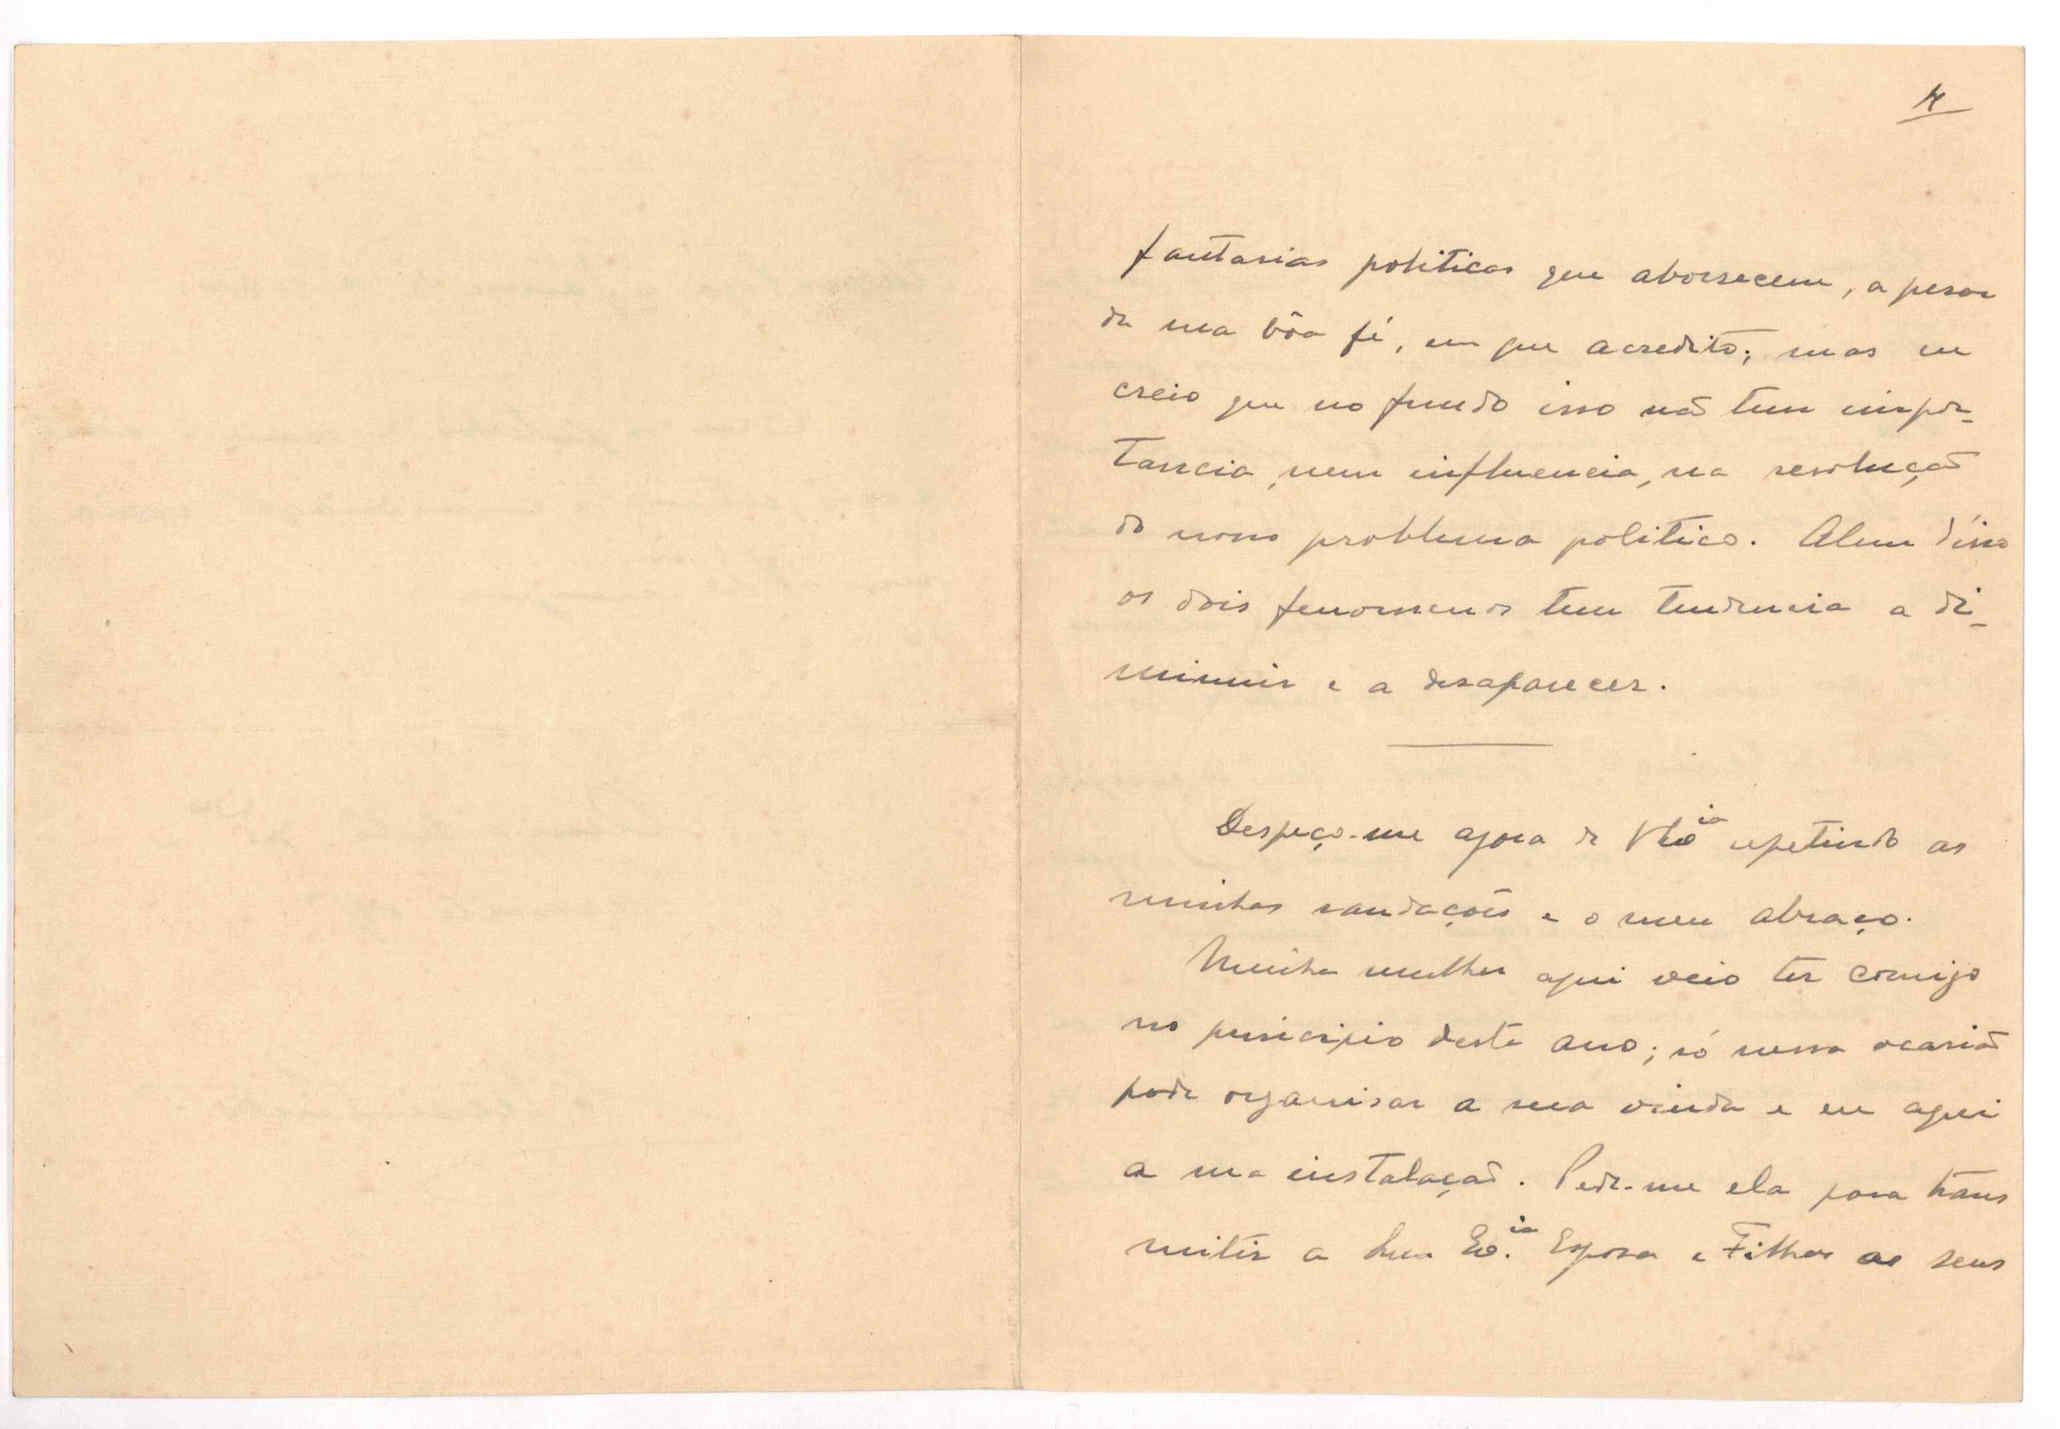 4
fantasias politicas que aborrecem, a pesar
da sua bôa fé, em que acredito; mas eu
creio que no fundo isso não tem impor-
tancia, nem influencia, na resolução
do nosso problema politico. Alem disso
os dois fenomenos tem tendencia a di-
minuir e a desaparecer.
Despeço-me agora de V Ex.cia repetindo as
minhas saudações e o meu abraço.
Minha mulher aqui veio ter comigo
no principio deste ano; só nessa ocasião
pode organisar a sua vinda e eu aqui
a sua instalação. Pede-me ela para trans
mitir a Sua Ex.cia Esposa e Filhas os seus